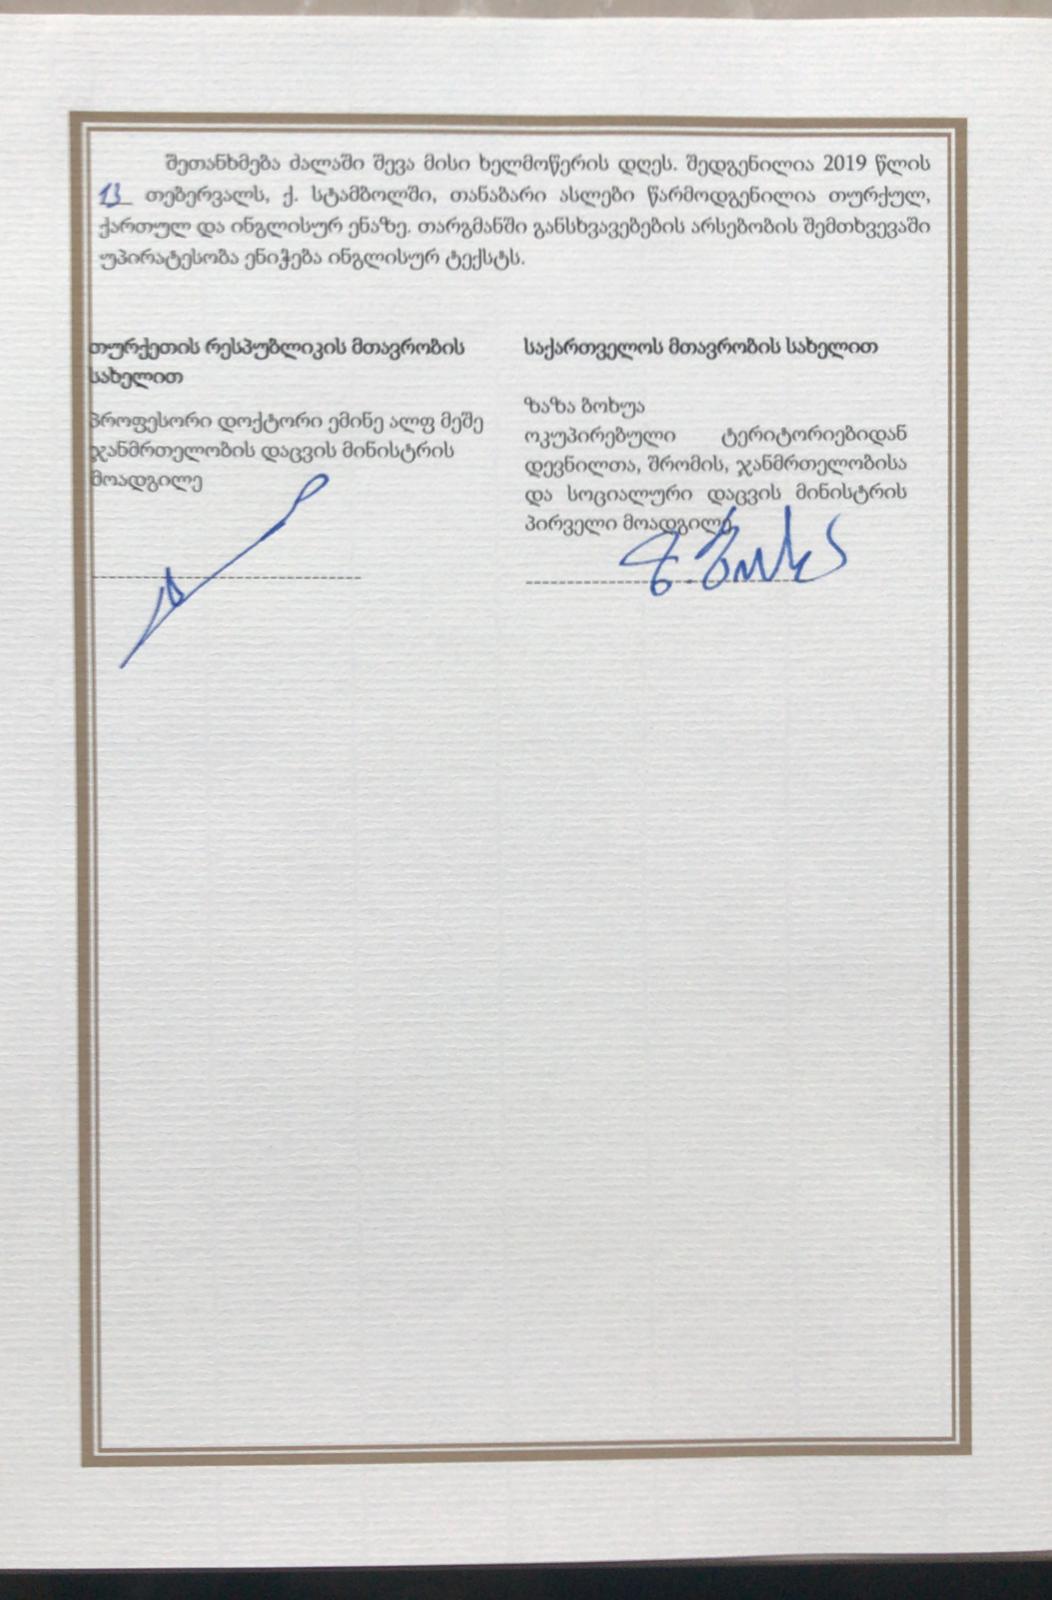 შეთანხმება ძალაში შევა მისი ხელმოწერის დღეს. შედგენილია 2019 წლის
13 თებერვალს, ქ. სტამბოლში, თანაბარი ასლები წარმოდგენილია თურქულ,
ქართულ და ინგლისურ ენაზე. თარგმანში განსხვავებების არსებობის შემთხვევაში
უპირატესობა ენიჭება ინგლისურ ტექსტს.
თურქეთის რესპუბლიკის მთავრობის
სახელით
პროფესორი დოქტორი ემინე ალფ მეშე
ჯანმრთელობის დაცვის მინისტრის
მოადგილე
საქართველოს მთავრობის სახელით
ზაზა ბოხუა
ოკუპირებული ტერიტორიებიდან
დევნილთა, შრომის, ჯანმრთელობისა
და სოციალური დაცვის მინისტრის
პირველი მოადგილე